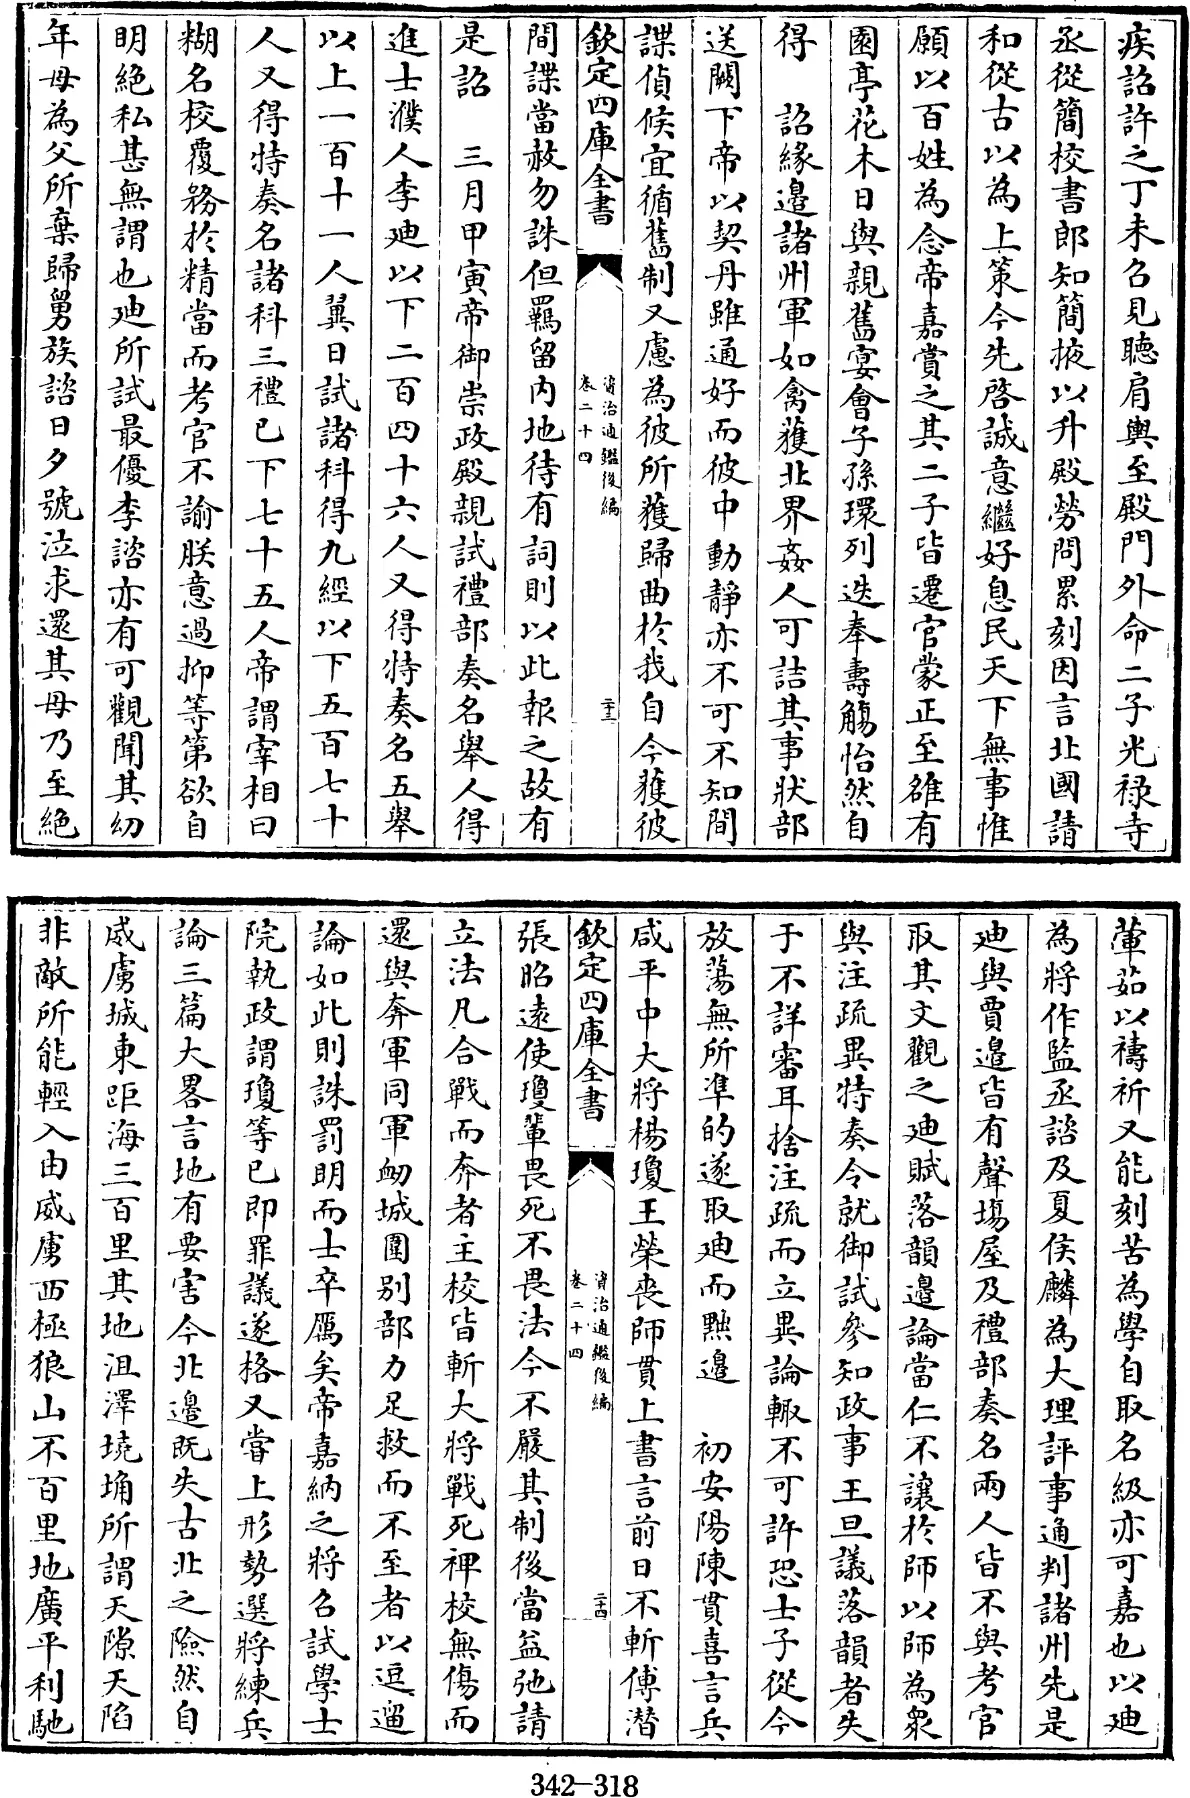 疾詔許之丁未召見聽肩輿至殿門外命二子光祿寺
丞從簡校書郎知簡掖以升殿勞問累刻因言北國請
和從古以為上策今先啓誠意繼好息民天下無事惟
願以百姓為念帝嘉賞之其二子皆遷官蒙正至雒有
園亭花木日與親舊宴會子孫環列迭奉壽觴怡然自
得　詔緣邊諸州軍如禽獲北界姦人可詰其事狀部
送闕下帝以契丹雖通好而彼中動靜亦不可不知間
諜偵候宜循舊制又慮為彼所獲歸曲於我自今獲彼
欽定四庫全書
資治通鑑後編
卷二十四
二十三
間諜當赦勿誅但羈留内地待有詞則以此報之故有
是詔　三月甲寅帝御崇政殿親試禮部奏名舉人得
進士濮人李廸以下二百四十六人又得特奏名五舉
以上一百十一人翼日試諸科得九經以下五百七十
人又得特奏名諸科三禮已下七十五人帝謂宰相曰
糊名校覆務於精當而考官不諭朕意過抑等第欲自
明絕私甚無謂也廸所試最優李諮亦有可觀聞其幼
年母為父所棄歸舅族諮日夕號泣求還其母乃至絕
葷茹以禱祈又能刻苦為學自取名級亦可嘉也以廸
為將作監丞諮及夏侯麟為大理評事通判諸州先是
廸與賈邊皆有聲塲屋及禮部奏名兩人皆不與考官
取其文觀之廸賦落韻邊論當仁不讓於師以師為衆
與注疏異特奏令就御試參知政事王旦議落韻者失
于不詳審耳捨注疏而立異論輙不可許恐士子從今
放蕩無所凖的遂取廸而黜邊　初安陽陳貫喜言兵
咸平中大將楊瓊王榮喪師貫上書言前日不斬傅潛
欽定四庫全書
資治通鑑後編
卷二十四
二十四
張昭遠使瓊輩畏死不畏法今不嚴其制後當益弛請
立法凡合戰而奔者主校皆斬大將戰死禆校無傷而
還與奔軍同軍衂城圍别部力足救而不至者以逗遛
論如此則誅罰明而士卒厲矣帝嘉納之將召試學士
院執政謂瓊等已即罪議遂格又嘗上形勢選將練兵
論三篇大畧言地有要害今北邊既失古北之險然自
威虜城東距海三百里其地沮澤墝埆所謂天隙天陷
非敵所能輕入由威虜西極狼山不百里地廣平利馳
342—318